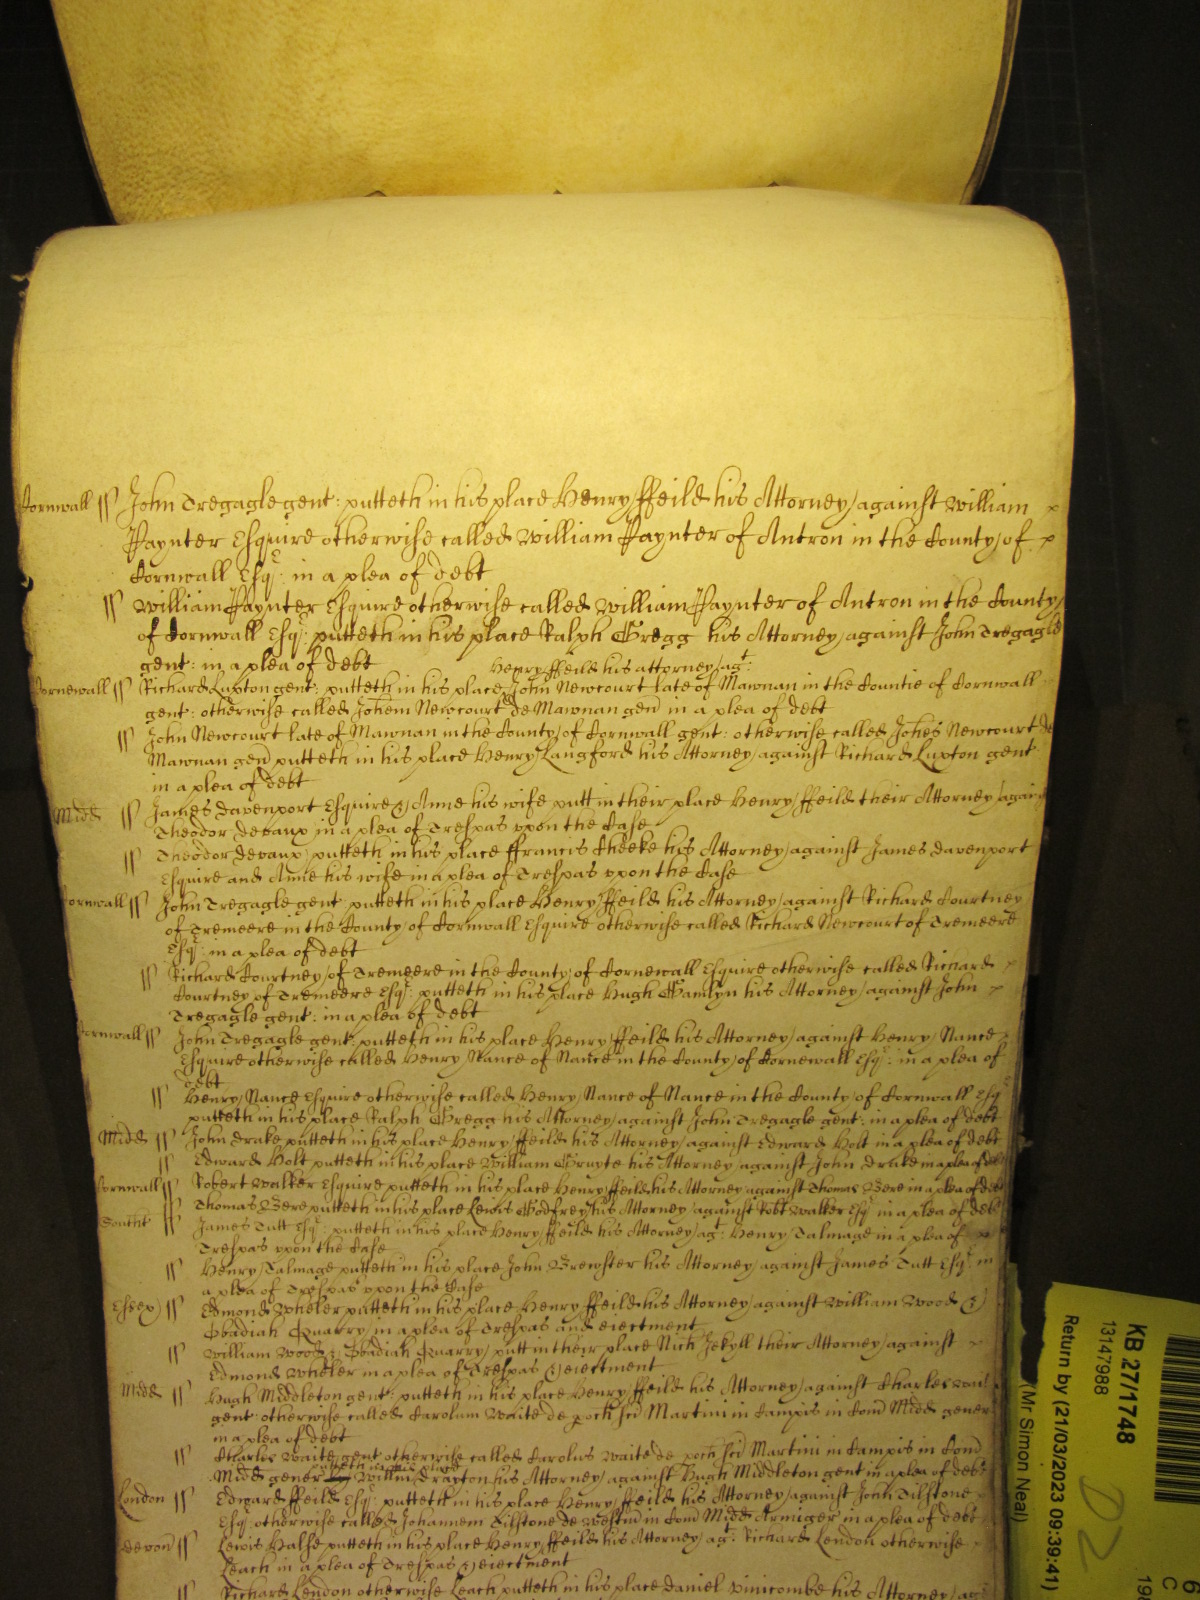 Cornwall ss John Tregagle gent: putteth in his place Henry ffeild his Attorney against William
Paynter Esquire otherwise called William Paynter of Antron in the County of
Cornwall Esqr: in a plea of debt
ss William Paynter Esquire otherwise called William Paynter of Antron in the County
of Cornwall Esqr: putteth in his place Ralph Gregg his Attorney against John Tregagle
gent: in a plea of debt
Henry ffeild his attorney agt:
Cornewall ss Richard Luxton gent: putteth in his place John Newcourt late of Mawnan in the Countie of Cornwall
gent: otherwise called Johem Newcourt de Mawnan gen in a plea of debt
ss John Newcourt late of Mawnan in the County of Cornwall gent: otherwise called Johes Newcourt de
Mawnan gen putteth in his place Henry Langford his Attorney against Richard Luxton gent
in a plea of debt
Midd ss James Davenport Esquire & Anne his wife putt in their place Henry ffeild their Attorney against
Theodor Devaux in a plea of Trespas upon the Case
ss Theodor Devaux putteth in his place ffrancis Cheeke his Attorney against James Davenport
Esquire and Anne his wife in a plea of Trespas upon the Case
Cornwall ss John Tregagle gent putteth in his place Henry ffeild his Attorney against Richard Courtney
of Tremeere in the County of Cornwall Esquire otherwise called Richard Newcourt of Tremeere
Esqr: in a plea of debt
ss Richard Courtney of Tremeere in the County of Cornewall Esquire otherwise called Richard
Courtney of Tremeere Esqr: putteth in his place Hugh Gamlyn his Attorney against John
Tregagle gent: in a plea of debt
Cornwall ss John Tregagle gent: putteth in his place Henry ffeild his Attorney against Henry Nance
Esquire otherwise called Henry Nance of Nance in the County of Cornewall Esqr: in a plea of
debt
ss Henry Nance Esquire otherwise called Henry Nance of Nance in the County of Cornwall Esqr
putteth in his place Ralph Gregg his Attorney against John Tregagle gent: in a plea of debt
Midd ss John Drake putteth in his place Henry ffeild his Attorney against Edward Holt in a plea of debt
ss Edward Holt putteth in his place William Gruyte his Attorney against John Drake in a plea of debt
Cornwall ss Robert Walker Esquire putteth in his place Henry ffeild his Attorney against Thomas Bere in a plea of debt
ss Thomas Bere putteth in his place Lewis Godfrey his Attorney against Robt Walker Esqr in a plea of debt
Southt ss James Tutt Esqr: putteth in his place Henry ffeild his Attorney agt: Henry Talmage in a plea of
Trespas upon the Case
ss Henry Talmage putteth in his place John Brewster his Attorney against James Tutt Esqr in
a plea of Trespas upon the Case
Essex ss Edmond Wheler putteth in his place Henry ffeild his Attorney against William Wood &
Obadiah Quarry in a plea of Trespas and eiectment
ss William Wood & Obadiah Quarry putt in their place Nich Jekyll their Attorney against
Edmond Wheler in a plea of Trespas & eiectment
Midd ss Hugh Middleton gent: putteth in his place Henry ffeild his Attorney against Charles Wait
gent: otherwise called Carolum Waite de poch sci Martini in Campis in Com Midd gener
in a plea of debt
ss Charles Waite gent otherwise called Carolus Waite de poch sci Martini in Campis in Com
putteth in his place
Midd gener Willm Drayton his Attorney against Hugh Middleton gent in a plea of debt
London ss Edward ffeild Esqr: putteth in his place Henry ffeild his Attorney against John Tilstone
Esqr: otherwise called Johannem Tilstone de Westm in Com Midd Armiger in a plea of debt
Devon ss Lewis Halse putteth in his place Henry ffeild his Attorney agt: Richard Lendon otherwise
Leach in a plea of Trespas & eiectment
ss Richard Lendon otherwise Leach putteth in his place Daniel Vinicombe his Attorney agt
KB 27/1748
13147988
Return by (21/03/2023 09:39:41)
(Mr Simon Neal)
D2